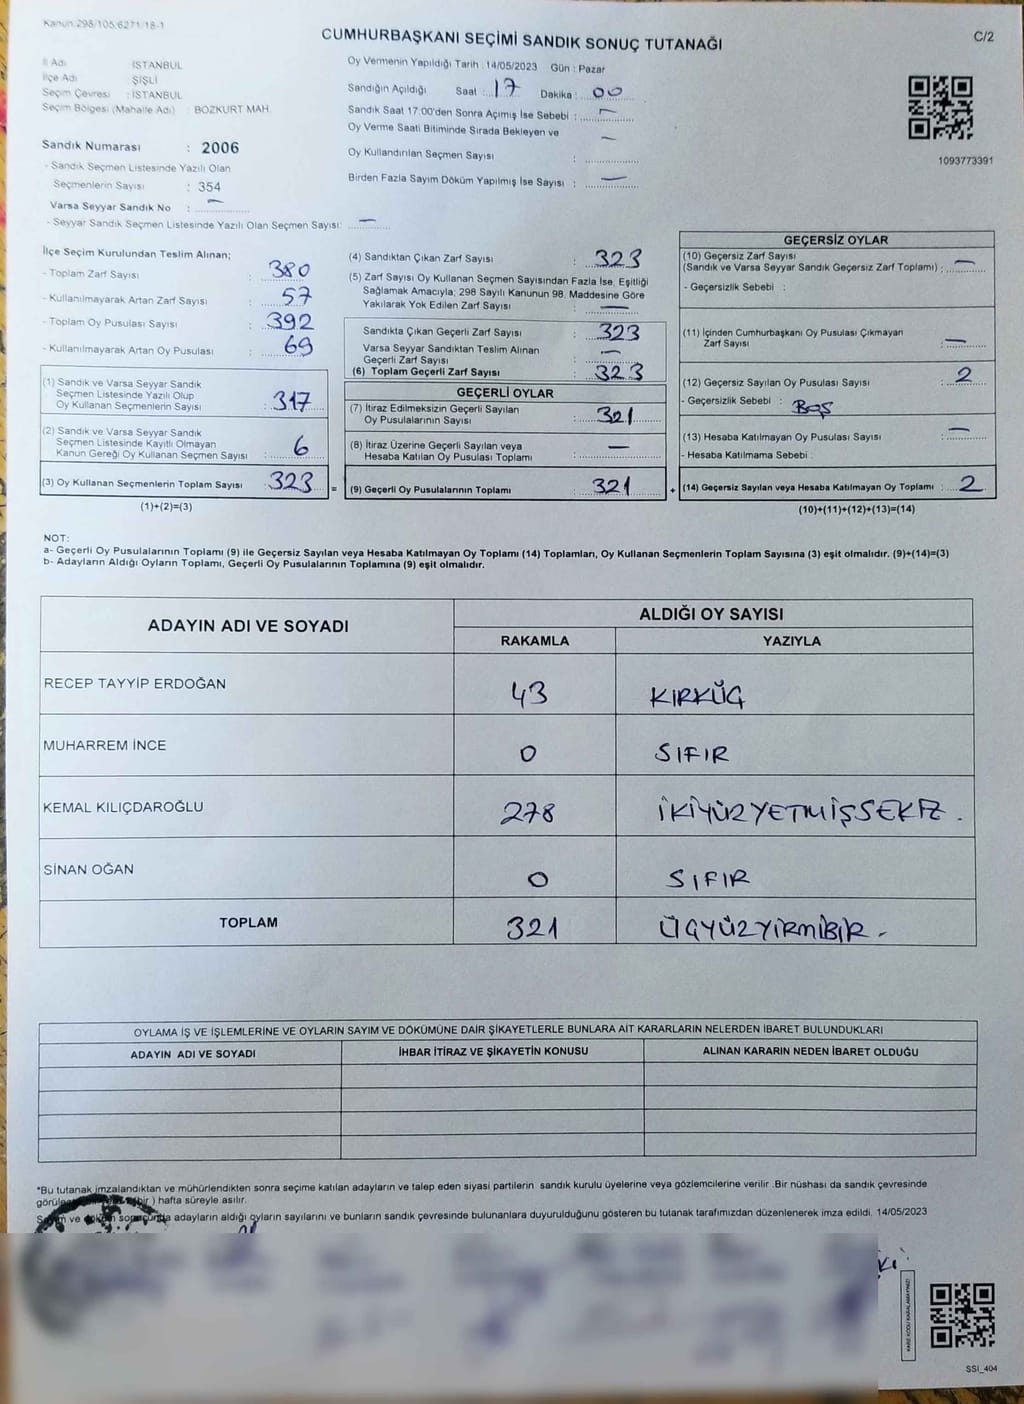 Kanun:298/105,6271/18-1
CUMHURBAŞKANI SEÇİMİ SANDIK SONUÇ TUTANAĞI
C/2
İl Adı : İSTANBUL
İlçe Adı : ŞİŞLİ
Seçim Çevresi : İSTANBUL
Seçim Bölgesi (Mahalle Adı) : BOZKURT MAH.
Sandık Numarası : 2006
- Sandık Seçmen Listesinde Yazılı Olan
Seçmenlerin Sayısı : 354
Varsa Seyyar Sandık No : —
- Seyyar Sandık Seçmen Listesinde Yazılı Olan Seçmen Sayısı: —
Oy Vermenin Yapıldığı Tarih :14/05/2023 Gün : Pazar
Sandığın Açıldığı Saat : 17 Dakika : 00
Sandık Saat 17.00'den Sonra Açımış İse Sebebi : —
Oy Verme Saati Bitiminde Sırada Bekleyen ve —
Oy Kullandırılan Seçmen Sayısı :
Birden Fazla Sayım Döküm Yapılmış İse Sayısı : —
1093773391
İlçe Seçim Kurulundan Teslim Alınan;
- Toplam Zarf Sayısı : 380
- Kullanılmayarak Artan Zarf Sayısı : 57
- Toplam Oy Pusulası Sayısı : 392
- Kullanılmayarak Artan Oy Pusulası : 69
(1) Sandık ve Varsa Seyyar Sandık
Seçmen Listesinde Yazılı Olup
Oy Kullanan Seçmenlerin Sayısı : 317
(2) Sandık ve Varsa Seyyar Sandık
Seçmen Listesinde Kayıtlı Olmayan
Kanun Gereği Oy Kullanan Seçmen Sayısı : 6
(3) Oy Kullanan Seçmenlerin Toplam Sayısı : 323 =
(1)+(2)=(3)
(4) Sandıktan Çıkan Zarf Sayısı : 323
(5) Zarf Sayısı Oy Kullanan Seçmen Sayısından Fazla İse, Eşitliği
Sağlamak Amacıyla; 298 Sayılı Kanunun 98. Maddesine Göre
Yakılarak Yok Edilen Zarf Sayısı : —
Sandıkta Çıkan Geçerli Zarf Sayısı : 323
Varsa Seyyar Sandıktan Teslim Alınan
Geçerli Zarf Sayısı : —
(6) Toplam Geçerli Zarf Sayısı : 323
GEÇERLİ OYLAR
(7) İtiraz Edilmeksizin Geçerli Sayılan
Oy Pusulalarının Sayısı : 321
(8) İtiraz Üzerine Geçerli Sayılan veya
Hesaba Katılan Oy Pusulası Toplamı : —
(9) Geçerli Oy Pusulalarının Toplamı : 321 +
GEÇERSİZ OYLAR
(10) Geçersiz Zarf Sayısı
(Sandık ve Varsa Seyyar Sandık Geçersiz Zarf Toplamı) : —
- Geçersizlik Sebebi :
(11) İçinden Cumhurbaşkanı Oy Pusulası Çıkmayan
Zarf Sayısı : —
(12) Geçersiz Sayılan Oy Pusulası Sayısı : 2
- Geçersizlik Sebebi : BOŞ
(13) Hesaba Katılmayan Oy Pusulası Sayısı : —
- Hesaba Katılmama Sebebi :
(14) Geçersiz Sayılan veya Hesaba Katılmayan Oy Toplamı : 2
(10)+(11)+(12)+(13)=(14)
NOT:
a- Geçerli Oy Pusulalarının Toplamı (9) ile Geçersiz Sayılan veya Hesaba Katılmayan Oy Toplamı (14) Toplamları, Oy Kullanan Seçmenlerin Toplam Sayısına (3) eşit olmalıdır. (9)+(14)=(3)
b- Adayların Aldığı Oyların Toplamı, Geçerli Oy Pusulalarının Toplamına (9) eşit olmalıdır.
ADAYIN ADI VE SOYADI ALDIĞI OY SAYISI
RAKAMLA YAZIYLA
RECEP TAYYİP ERDOĞAN 43 KIRKÜÇ
MUHARREM İNCE 0 SIFIR
KEMAL KILIÇDAROĞLU 278 İKİYÜZYETMİŞSEKİZ.
SİNAN OĞAN 0 SIFIR
TOPLAM 321 ÜÇYÜZYİRMİBİR -
OYLAMA İŞ VE İŞLEMLERİNE VE OYLARIN SAYIM VE DÖKÜMÜNE DAİR ŞİKAYETLERLE BUNLARA AİT KARARLARIN NELERDEN İBARET BULUNDUKLARI
ADAYIN ADI VE SOYADI İHBAR İTİRAZ VE ŞİKAYETİN KONUSU ALINAN KARARIN NEDEN İBARET OLDUĞU
*Bu tutanak imzalandıktan ve mühürlendikten sonra seçime katılan adayların ve talep eden siyasi partilerin sandık kurulu üyelerine veya gözlemcilerine verilir .Bir nüshası da sandık çevresinde
bir ) hafta süreyle asılır.
ve döküm sonucunda adayların aldığı oyların sayılarını ve bunların sandık çevresinde bulunanlara duyurulduğunu gösteren bu tutanak tarafımızdan düzenlenerek imza edildi. 14/05/2023
KARE KODU KARALAMAYINIZ!
SSI_404